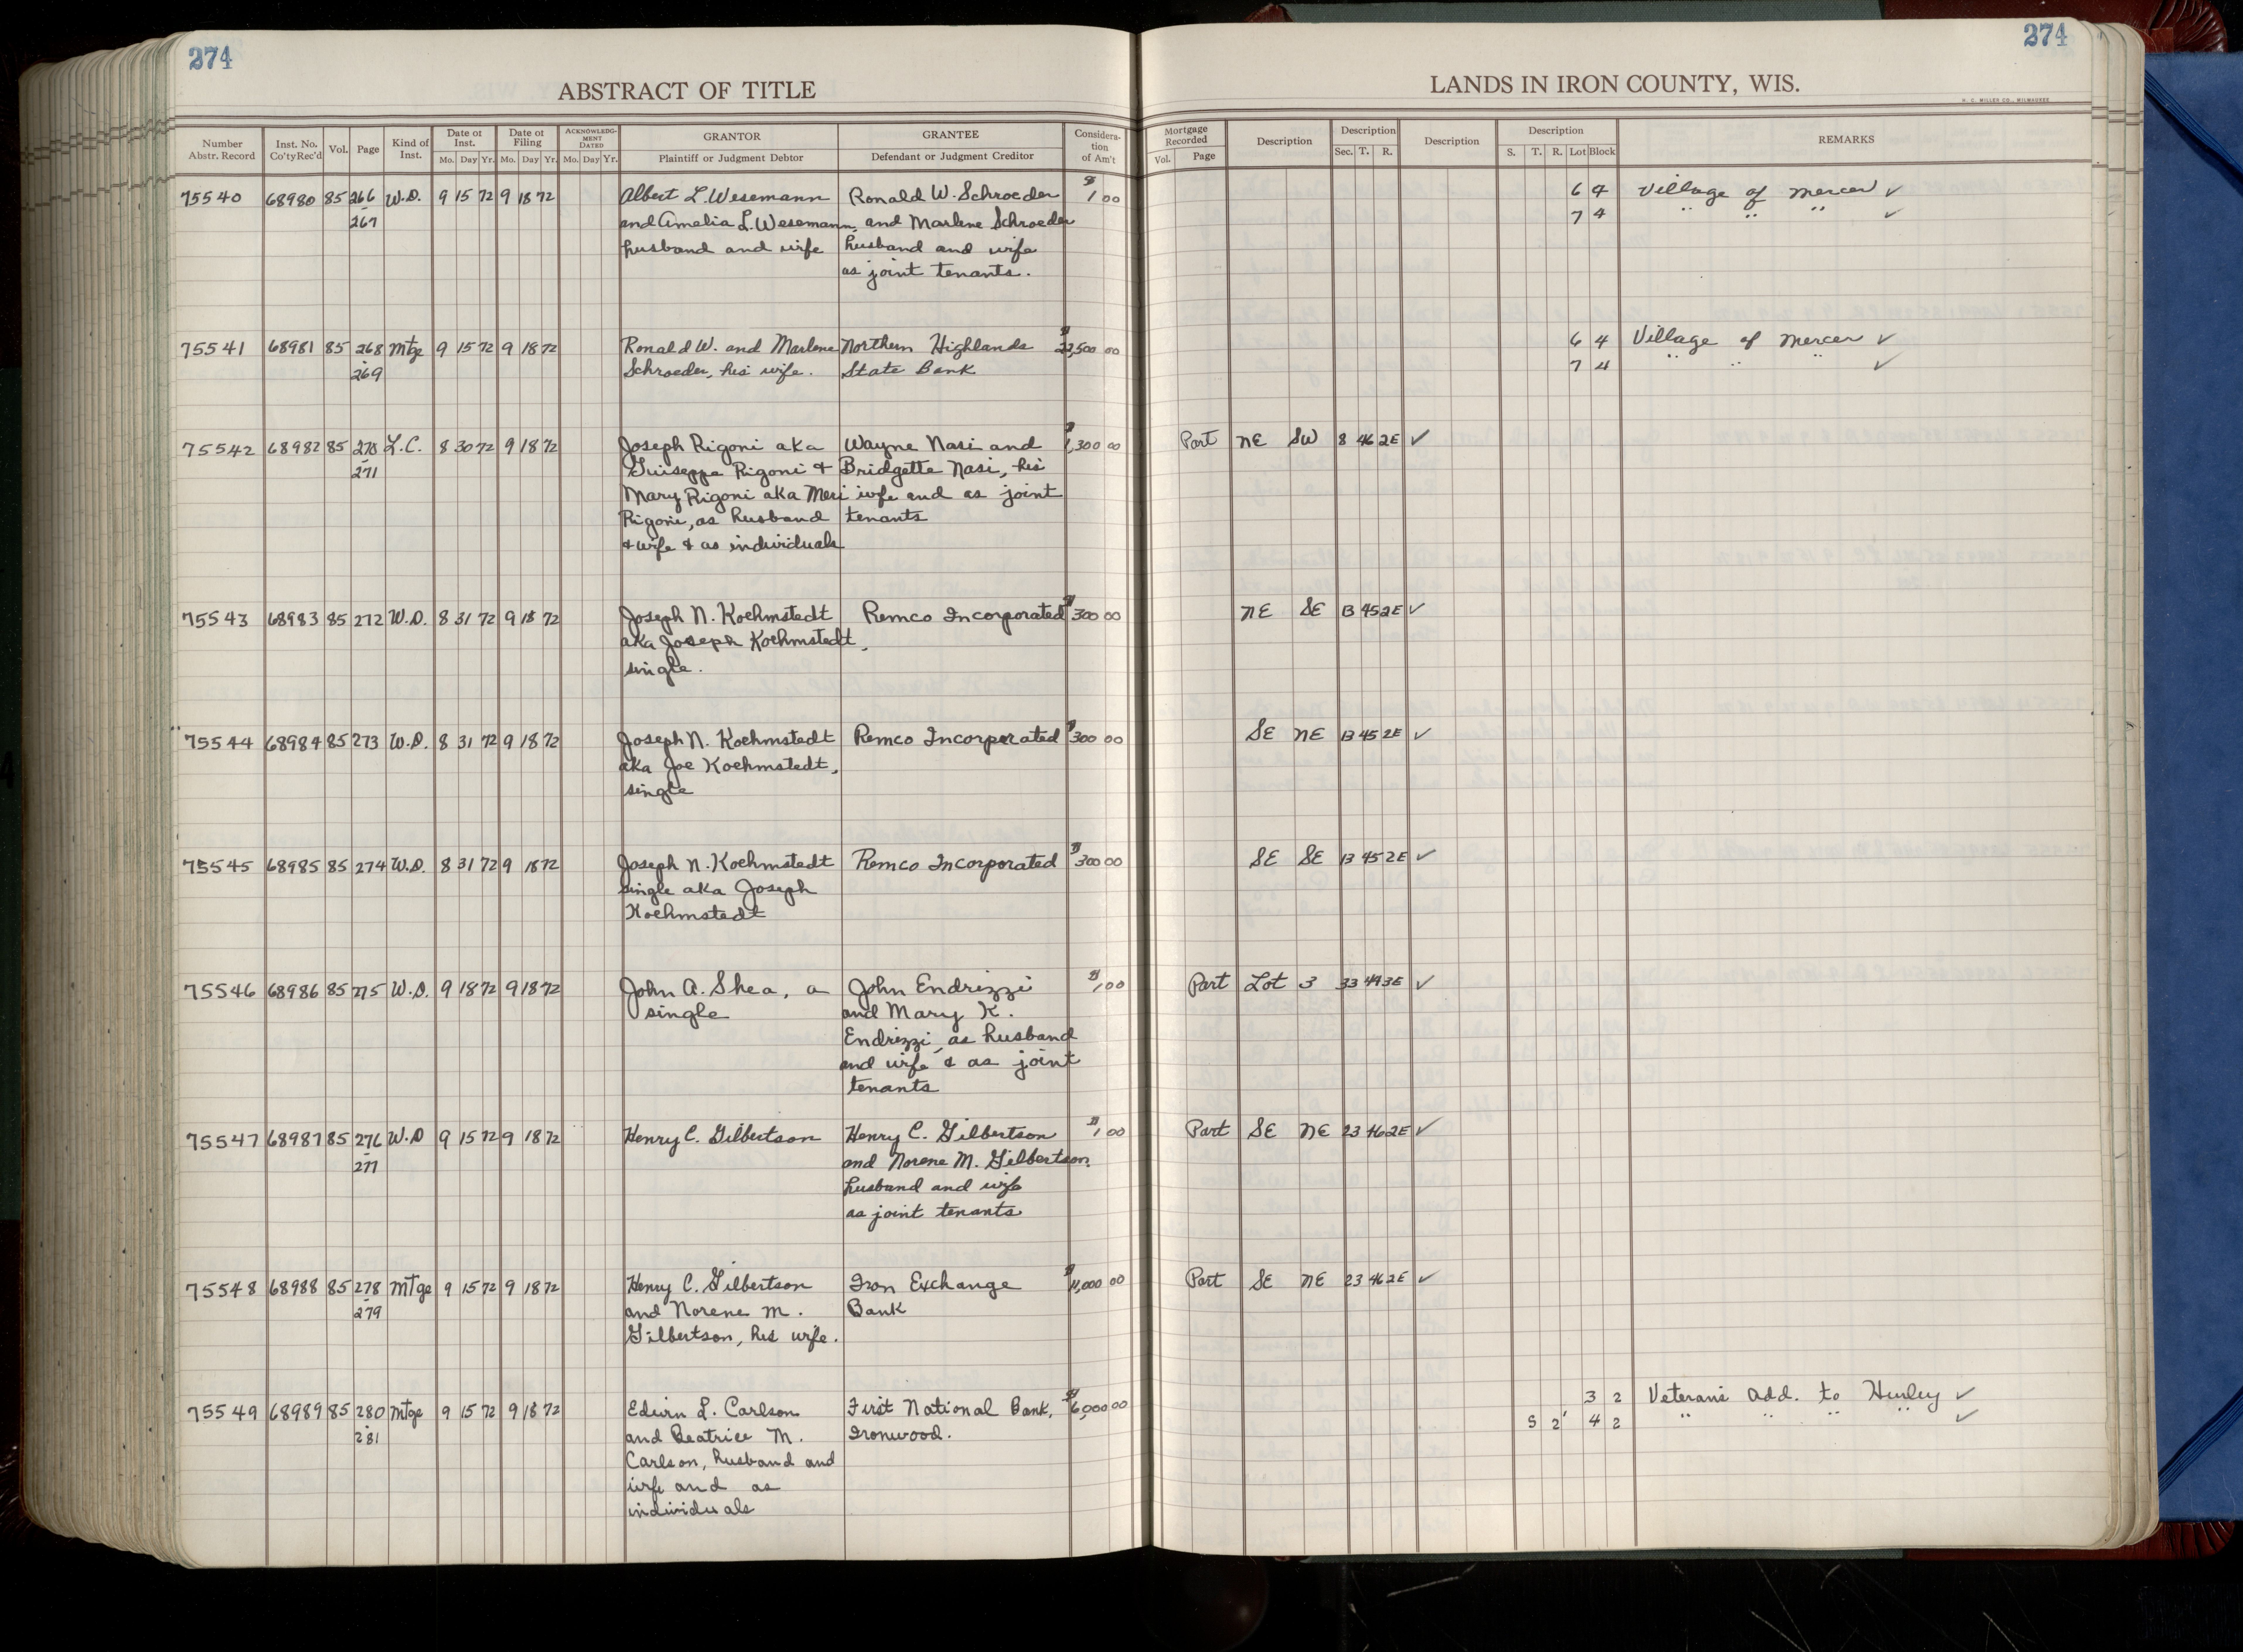 274
274
ABSTRACT OF TITLE
LANDS IN IRON COUNTY, WIS.
H. C. MILLER CO., MILWAUKEE
Number Abstr. Record
Inst. No. Co'ty Rec'd
Vol.
Page
Kind of Inst.
Date of Inst. Mo. Day Yr.
Date of Filing Mo. Day Yr.
ACKNOWLEDGMENT DATED Mo. Day Yr.
GRANTOR Plaintiff or Judgment Debtor
GRANTEE Defendant or Judgment Creditor
Consideration of Am't
Mortgage Recorded Vol. Page
Description
Description Sec. T. R.
Description
Description S. T. R. Lot Block
REMARKS
75540 68980 85 266 W.D. 9 15 72 9 18 72 Albert L Wesemann Ronald W. Schroeder $1 00 6 4 Village of Mercer ✓
- 267 and Amelia L. Wesemann, and Marlene Schroeder 7 4 " " " ✓
husband and wife husband and wife
as joint tenants.
75541 68981 85 268 Mtge 9 15 72 9 18 72 Ronald W. and Marlene Northern Highlands $22,500 00 6 4 Village of Mercer ✓
- 269 Schroeder, his wife. State Bank 7 4 " " " ✓
75542 68982 85 270 L.C. 8 30 72 9 18 72 Joseph Rigoni aka Wayne Nasi and $1,300 00 Part NE SW 8 46 2E ✓
- 271 Guiseppe Rigoni & Bridgette Nasi, his
Mary Rigoni aka Meri wife and as joint
Rigoni, as husband tenants
& wife & as individuals
75543 68983 85 272 W.D. 8 31 72 9 18 72 Joseph N. Koehmstedt Remco Incorporated $300 00 NE SE 13 45 2E ✓
aka Joseph Koehmstedt,
single.
75544 68984 85 273 W.D. 8 31 72 9 18 72 Joseph N. Koehmstedt Remco Incorporated $300 00 SE NE 13 45 2E ✓
aka Joe Koehmstedt,
single
75545 68985 85 274 W.D. 8 31 72 9 18 72 Joseph N. Koehmstedt Remco Incorporated $300 00 SE SE 13 45 2E ✓
single aka Joseph
Koehmstedt
75546 68986 85 275 W.D. 9 18 72 9 18 72 John A. Shea, a John Endrizzi $1 00 Part Lot 3 33 3E ✓
single and Mary K.
Endrizzi, as husband
and wife & as joint
tenants
75547 68987 85 276 W.D 9 15 72 9 18 72 Henry C. Gilbertson Henry C. Gilbertson $1 00 Part SE NE 23 46 2E ✓
- 277 and Norene M. Gilbertson,
husband and wife
as joint tenants
75548 68988 85 278 Mtge 9 15 72 9 18 72 Henry C. Gilbertson Iron Exchange $11,000 00 Part SE NE 23 46 2E ✓
- 279 and Norene M. Bank
Gilbertson, his wife.
75549 68989 85 280 Mtge 9 15 72 9 18 72 Edwin L. Carlson First National Bank, $6,000 00 3 2 Veterans Add. to Hurley ✓
- 281 and Beatrice M. Ironwood. S 2' 4 2 " " " " ✓
Carlson, husband and
wife and as
individuals